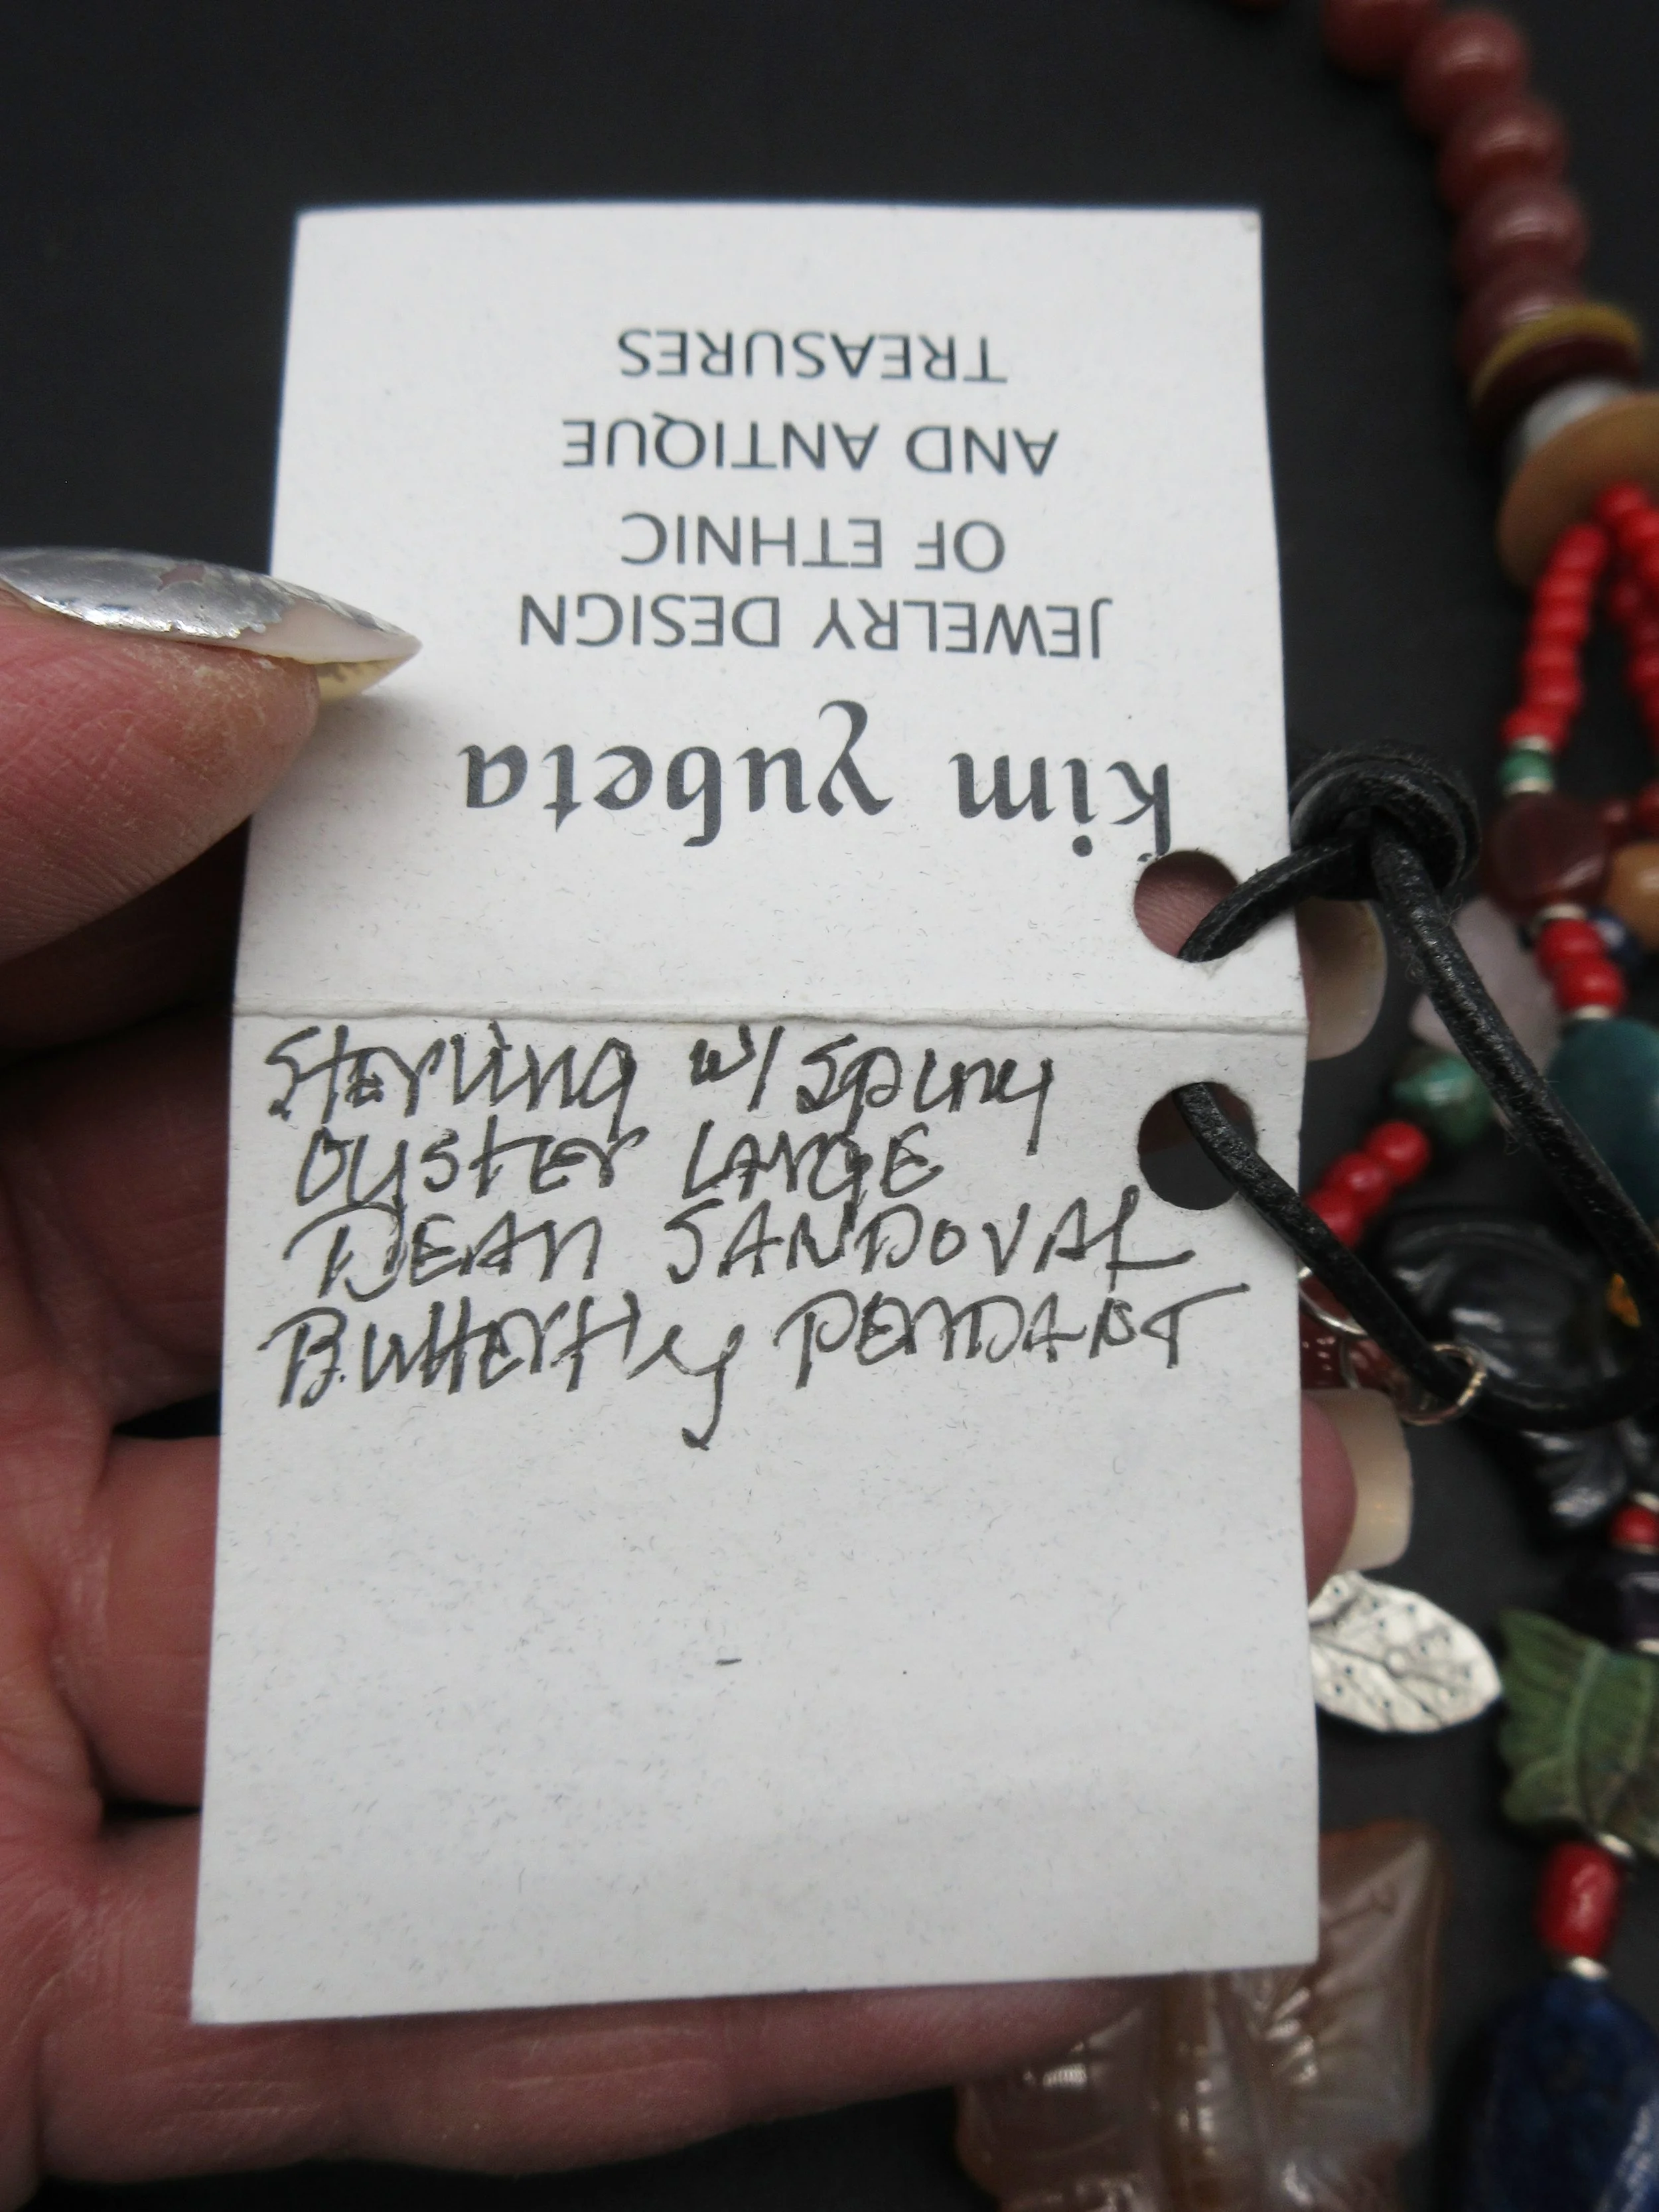 kim yubeta
JEWELRY DESIGN
OF ETHNIC
AND ANTIQUE
TREASURES
Sterling w/ spiny
OYSTER LARGE
DEAN SANDOVAL
Butterfly PENDANT